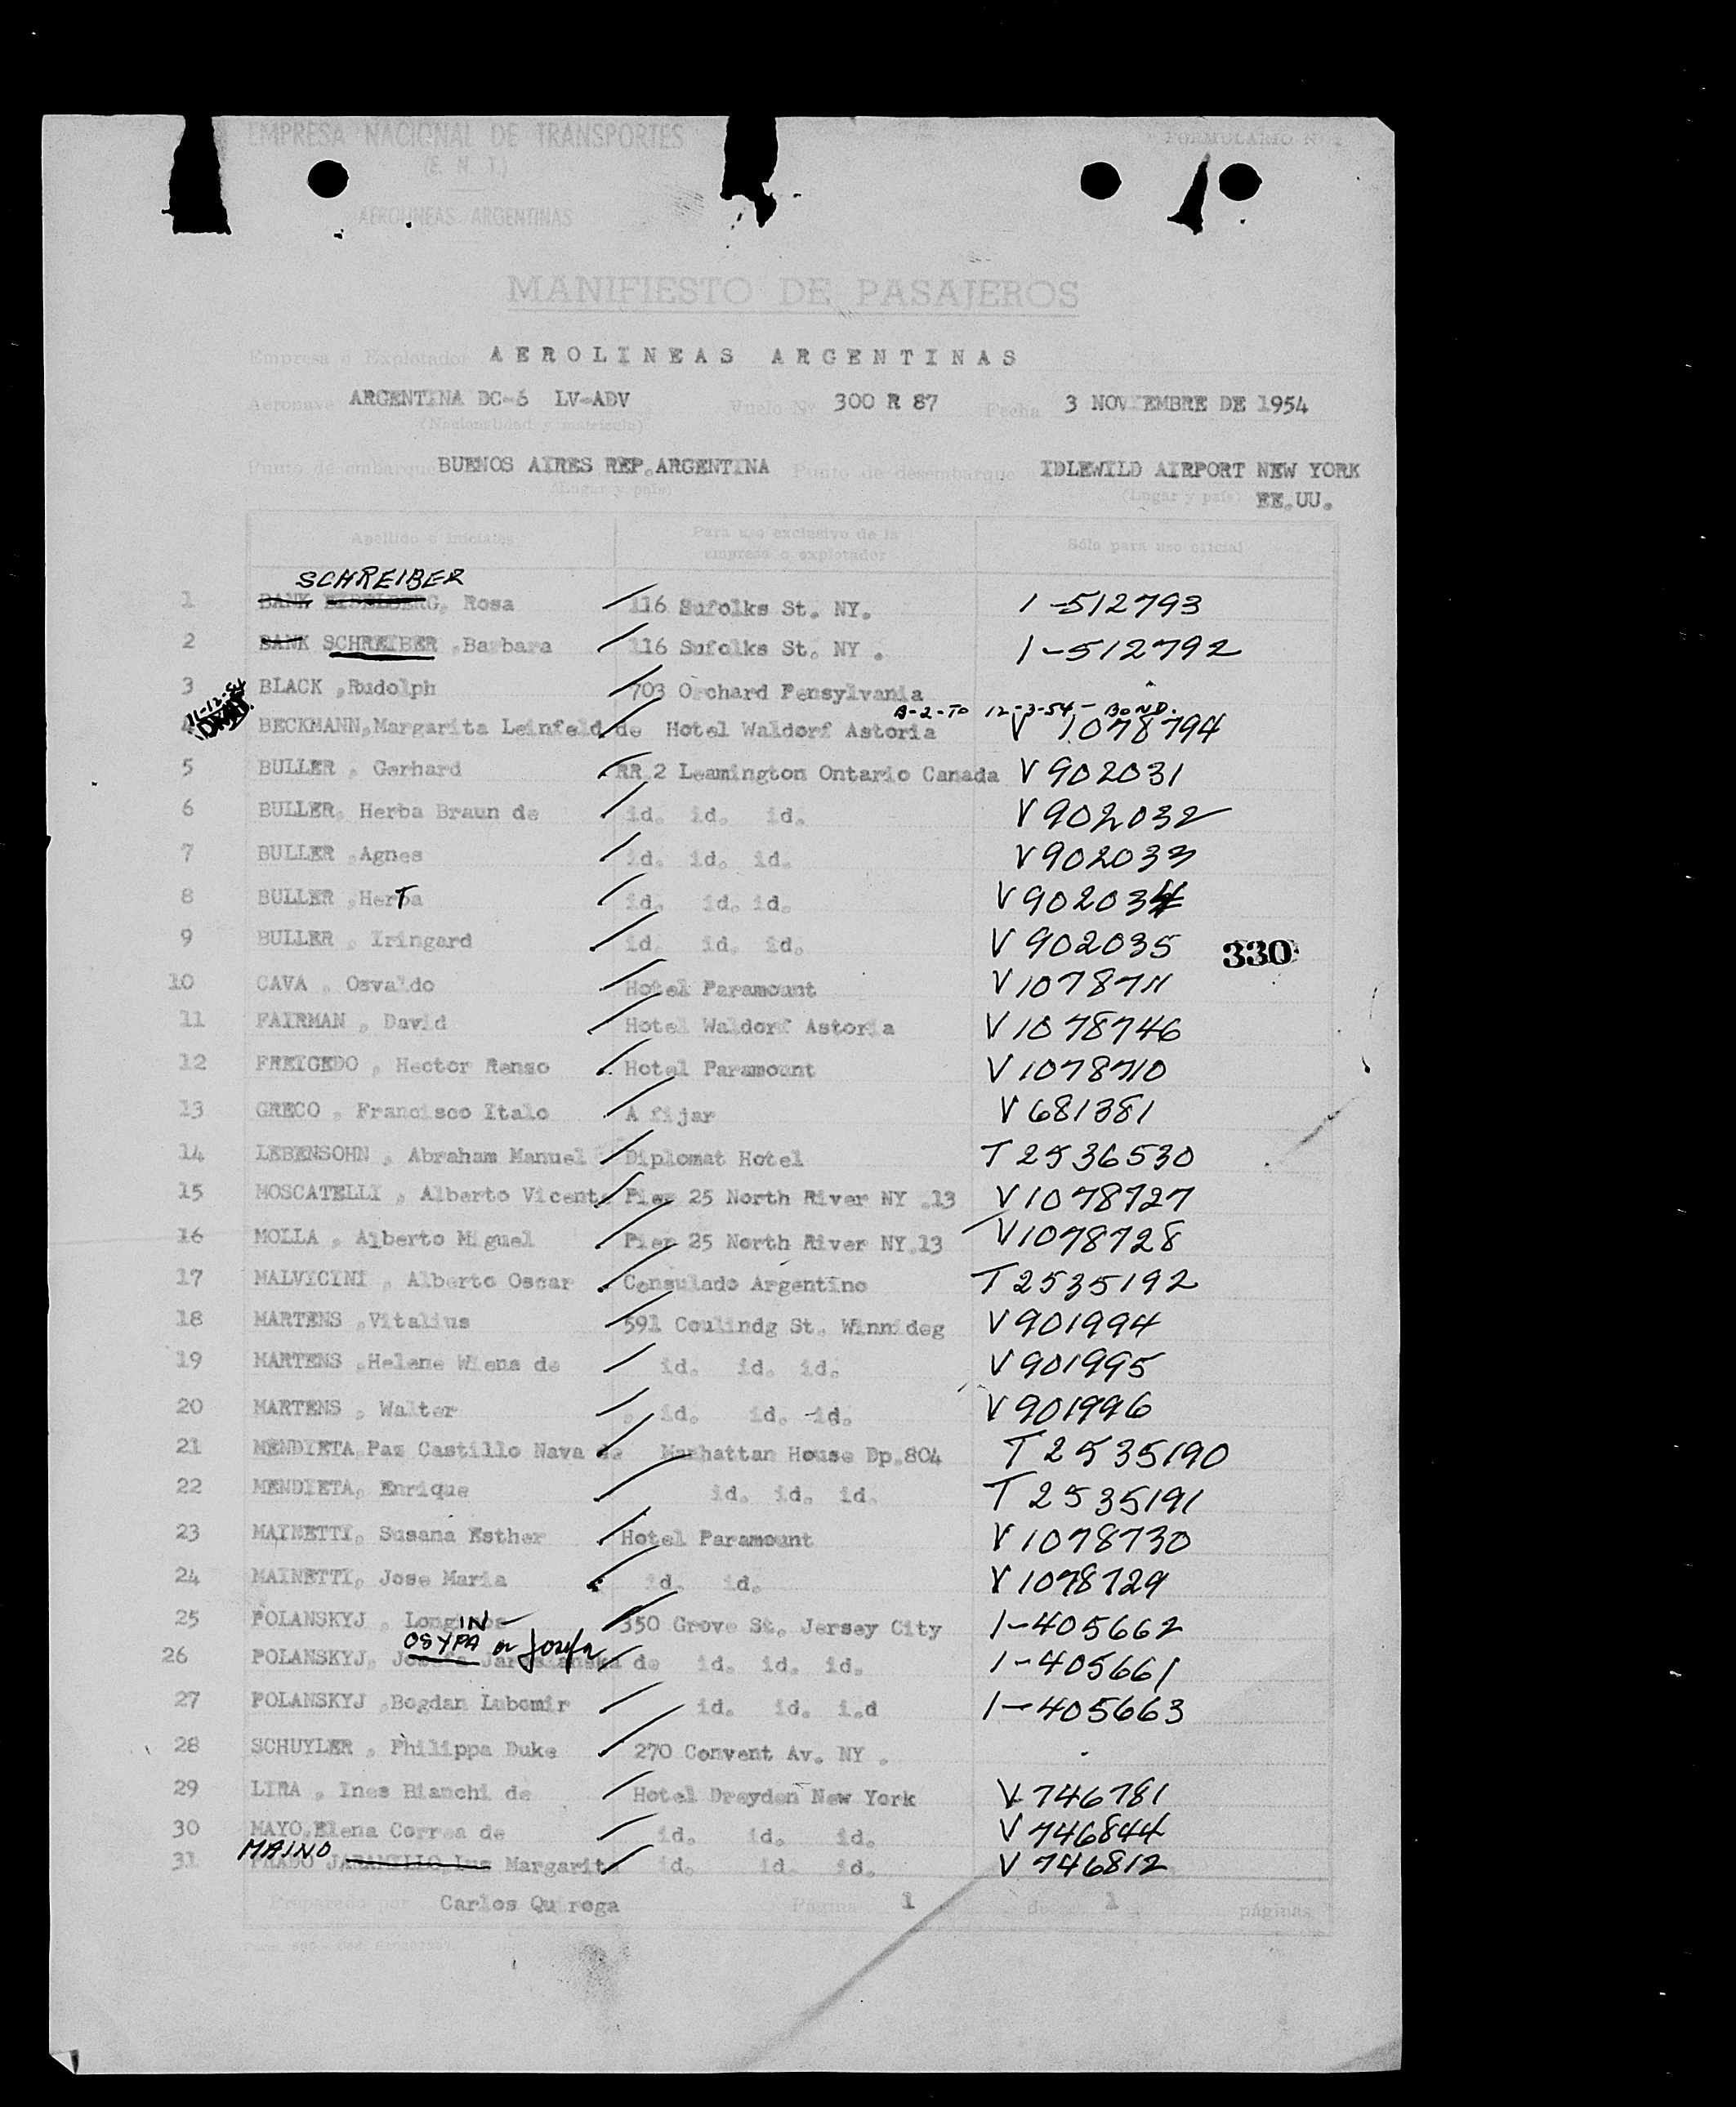 EMPRESA NACIONAL DE TRANSPORTES
(E. N. T.)
AEROLINEAS ARGENTINAS
FORMULARIO Nº
MANIFIESTO DE PASAJEROS
Empresa o Explotador AEROLINEAS ARGENTINAS
Aeronave ARGENTINA DC-6 LV-ADV Vuelo Nº 300 R 87 Fecha 3 NOVIEMBRE DE 1954
(Nacionalidad y matrícula)
Punto de embarque BUENOS AIRES REP.ARGENTINA Punto de desembarque IDLEWILD AIRPORT NEW YORK
(Lugar y país) (Lugar y país) EE.UU.
Apellido e iniciales Para uso exclusivo de la empresa o explotador Sólo para uso oficial
SCHREIBER
1 BANK EIDELBERG, Rosa 116 Sufolks St. NY. 1-512793
2 BANK SCHREIBER ,Barbara 116 Sufolks St. NY . 1-512792
3 BLACK ,Rudolph 703 Orchard Pensylvania
11-12-54 B-2-TO 12-3-54 - BOND.
4 BECKMANN,Margarita Leinfeld de Hotel Waldorf Astoria V 1078794
5 BULLER , Gerhard RR 2 Leamington Ontario Canada V 902031
6 BULLER, Herba Braun de id. id. id. V 902032
7 BULLER ,Agnes id. id. id. V 902033
8 BULLER ,HerTa id. id. id. V 902034
9 BULLER , Iringard id. id. id. V 902035 330
10 CAVA , Osvaldo Hotel Paramount V 1078711
11 FAIRMAN , David Hotel Waldorf Astoria V 1078746
12 FREIGEDO , Hector Renso Hotel Paramount V 1078710
13 GRECO , Francisco Italo A fijar V 681381
14 LEBENSOHN , Abraham Manuel Diplomat Hotel T 2536530
15 MOSCATELLI , Alberto Vicente Pier 25 North River NY .13 V 1078727
16 MOLLA , Alberto Miguel Pier 25 North River NY.13 V 1078728
17 MALVICINI , Alberto Oscar Consulado Argentino T 2535192
18 MARTENS ,Vitalius 591 Coulindg St. Winnideg V 901994
19 MARTENS ,Helene Wiens de id. id. id. V 901995
20 MARTENS , Walter id. id. id. V 901996
21 MENDIETA,Paz Castillo Nava de Manhattan House Dp.804 T 2535190
22 MENDIETA, Enrique id. id. id. T 2535191
23 MAINETTI, Susana Esther Hotel Paramount V 1078730
24 MAINETTI, Jose Maria id. id. V 1078729
25 POLANSKYJ , Longinos IN 350 Grove St. Jersey City 1-405662
OSYPA or Josefa
26 POLANSKYJ, Josefa de id. id. id. 1-405661
27 POLANSKYJ ,Bogdan Lubomir id. id. i.d 1-405663
28 SCHUYLER , Philippa Duke 270 Convent Av. NY .
29 LIRA , Ines Bianchi de Hotel Dreyden New York V 746781
30 MAYO,Elena Correa de id. id. id. V 746844
MAINO
31 PRADO JARAMILLO,Luz Margarita id. id. id. V 746812
Preparado por Carlos Quiroga Página 1 de 1 páginas